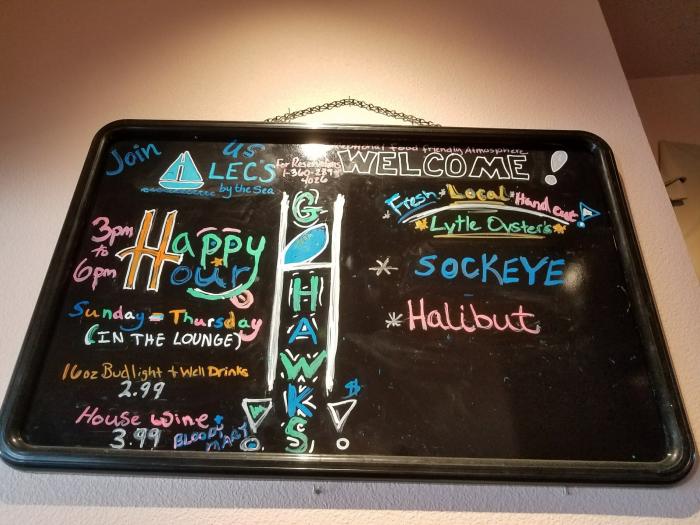 Join us
LEC'S
by the Sea
3pm
to
6pm
Happy
Hour
Sunday - Thursday
(IN THE LOUNGE)
16oz Budlight + Well Drinks
2.99
House Wine +
3.99 BLOODY MARY
For Reservations
GO HAWKS
Food Friendly Atmosphere
WELCOME!
Fresh * Local * Hand cut
Lytle Oyster's
* SOCKEYE
* Halibut